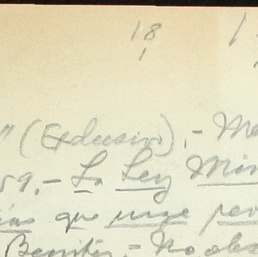 18
" (Exclusivo).- Me
59.- La Ley Min
ías que urge
Benítez.- No obs